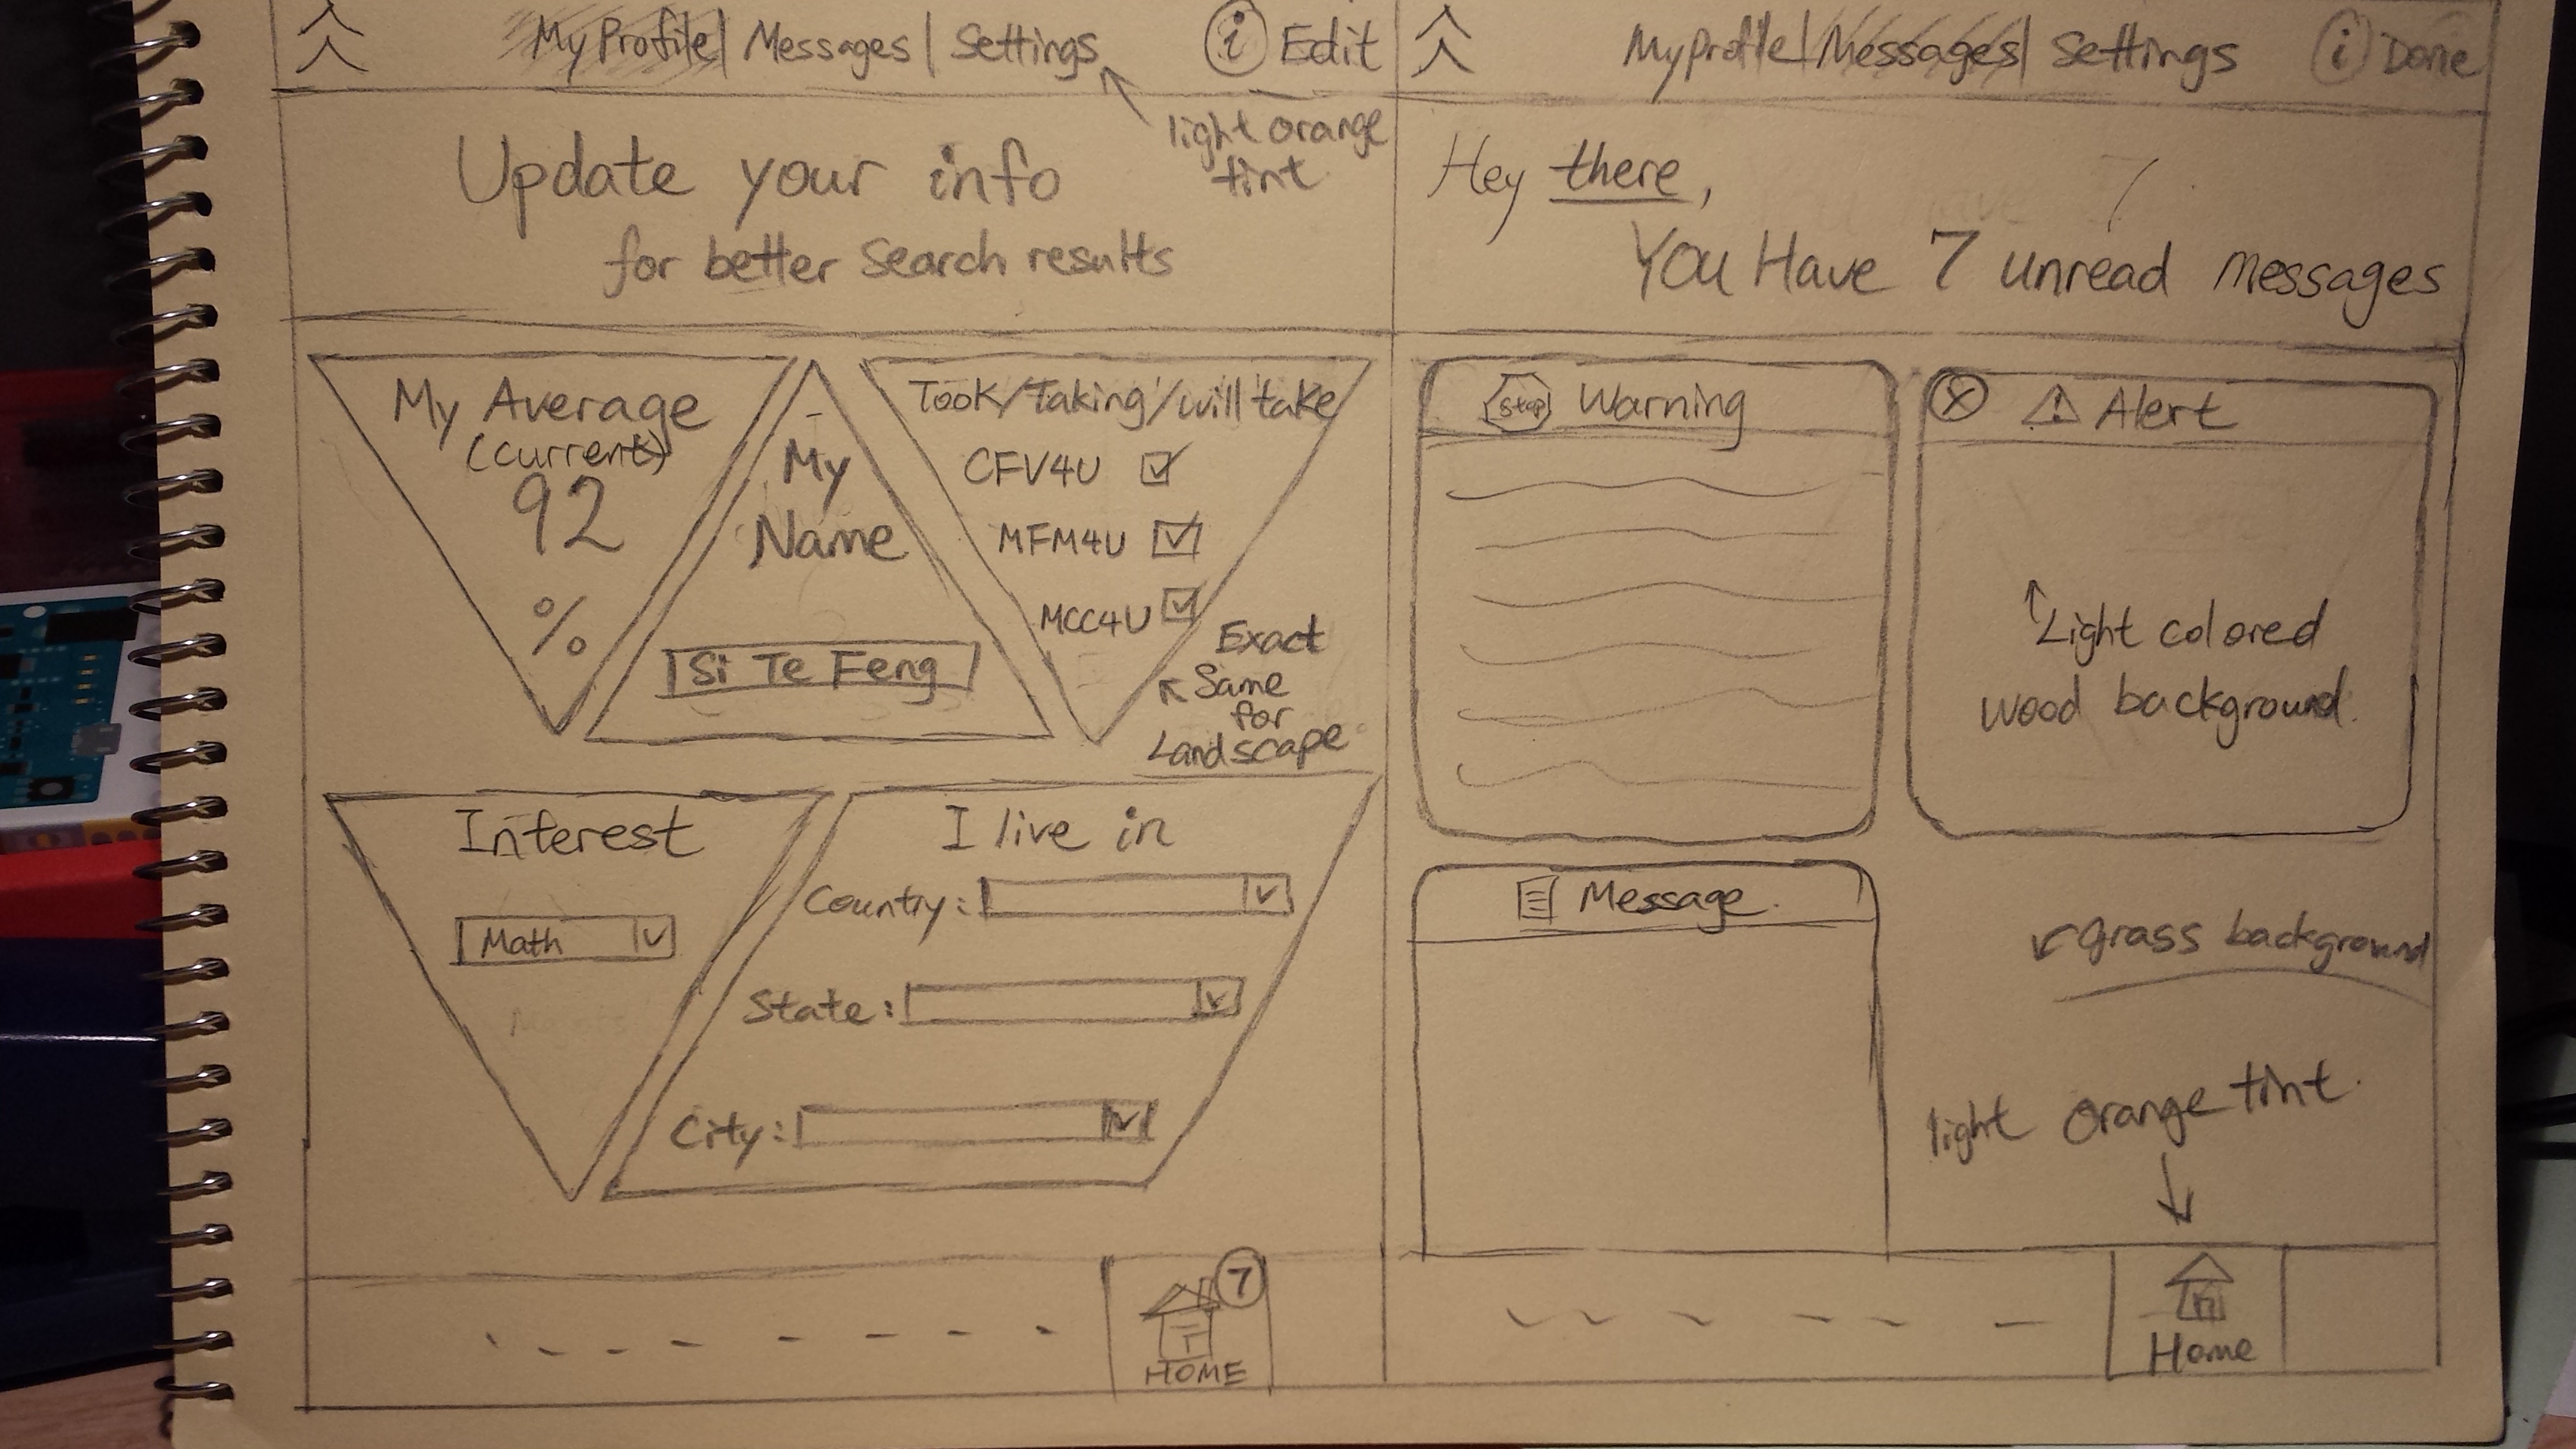 My Profile | Messages | Settings
i Edit
light orange
tint
Update your info
for better search results
My Average
(current)
92
%
My
Name
Si Te Feng
Took/Taking/will take
CFV4U
MFM4U
MCC4U
Exact
Same
for
Landscape
Interest
Math
I live in
Country:
State:
City:
7
HOME
My Profile | Messages | Settings
i Done
Hey there,
You Have 7 unread messages
Stop Warning
X ! Alert
Light colored
wood background.
Message.
grass background
light orange tint.
Home